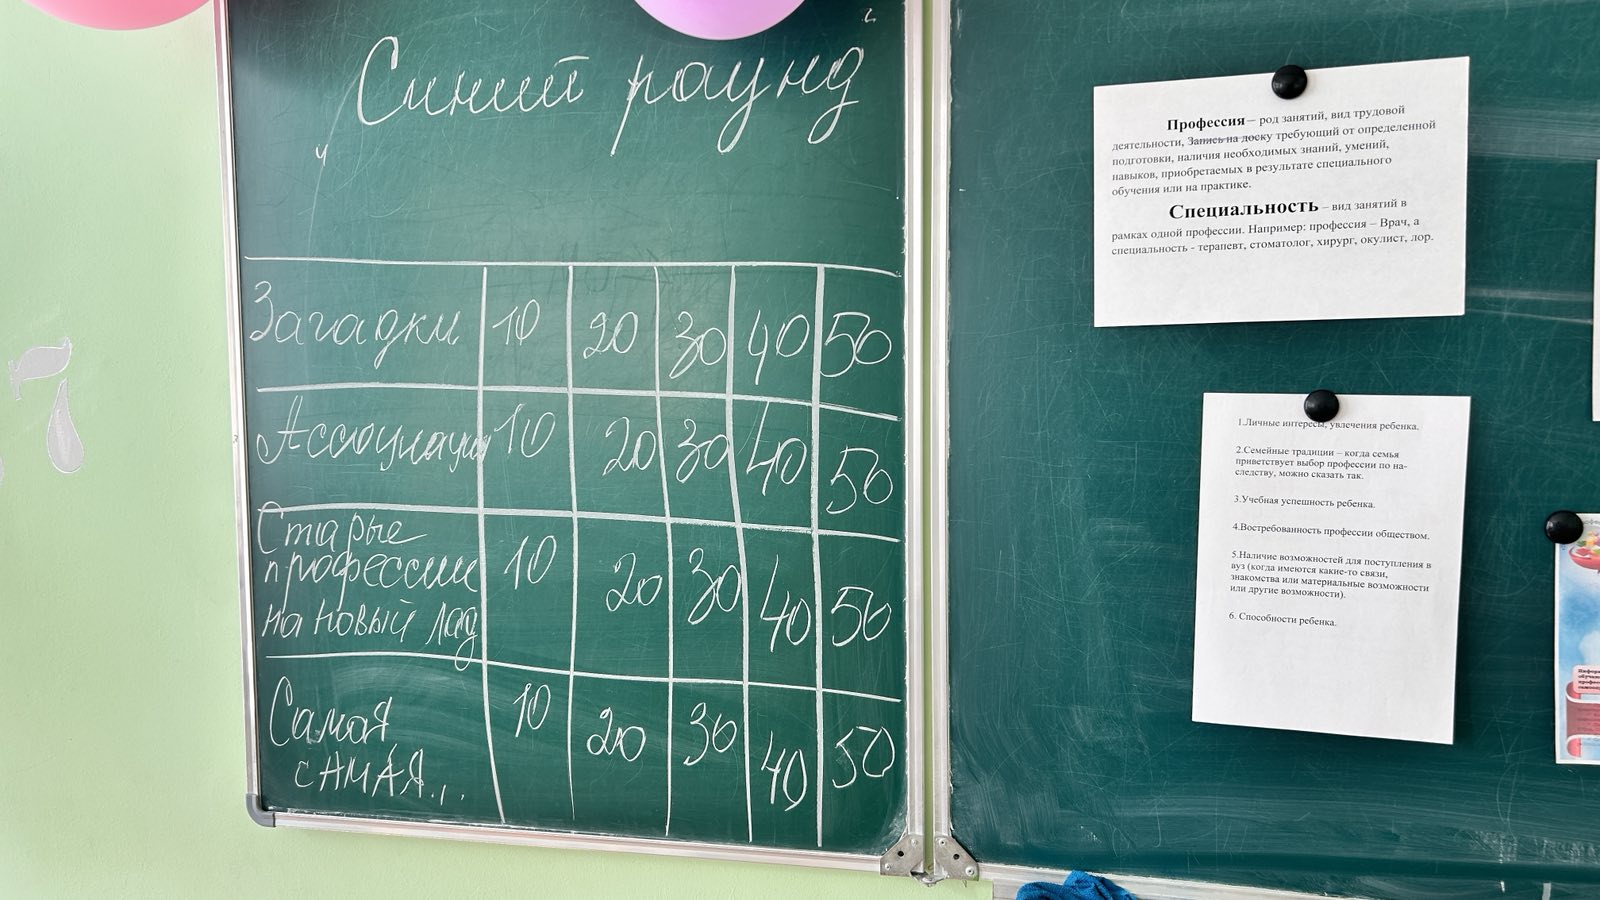 Синий раунд
Загадки 10 20 30 40 50
Ассоциации 10 20 30 40 50
Старые
профессии
на новый лад 10 20 30 40 50
Самая
САМАЯ... 10 20 30 40 50
Профессия – род занятий, вид трудовой
деятельности, Запись на доску требующий от определенной
подготовки, наличия необходимых знаний, умений,
навыков, приобретаемых в результате специального
обучения или на практике.
Специальность – вид занятий в
рамках одной профессии. Например: профессия – Врач, а
специальность - терапевт, стоматолог, хирург, окулист, лор.
1.Личные интересы, увлечения ребенка.
2.Семейные традиции – когда семья
приветствует выбор профессии по на-
следству, можно сказать так.
3.Учебная успешность ребенка.
4.Востребованность профессии обществом.
5.Наличие возможностей для поступления в
вуз (когда имеются какие-то связи,
знакомства или материальные возможности
или другие возможности).
6. Способности ребенка.
7